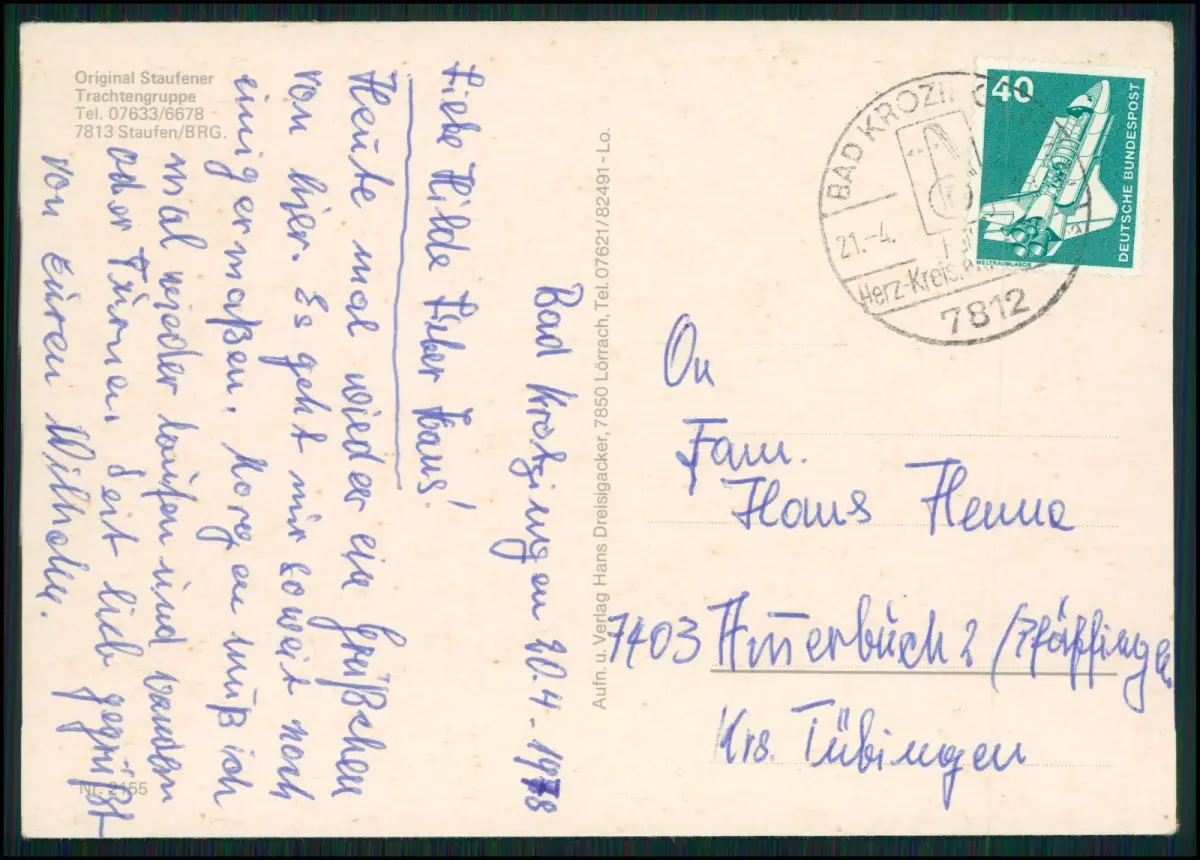 Original Staufener
Trachtengruppe
Tel. 07633/6678
7813 Staufen/BRG.
Bad Krotzingen 20.4.-1978
Liebe Hilde Lieber Hans!
Heute mal wieder ein Grüßchen
von hier. Es geht mir soweit noch
einigermaßen. Morgen muß ich
mal wieder laufen und wandern
oder Türnen. Seit lieb gegrüßt
von Euren Wilhelm.
Nr. 2155
Aufn. u. Verlag Hans Dreisigacker, 7850 Lörrach, Tel. 07621/82491 - Lo.
BAD KROZIN
21.-4.
Herz-Kreis
7812
40
DEUTSCHE BUNDESPOST
WELTRAUMLABOR
An
Fam.
Hans Henne
7403 Ammerbuch 2 (Pfäffingen
Krs. Tübingen